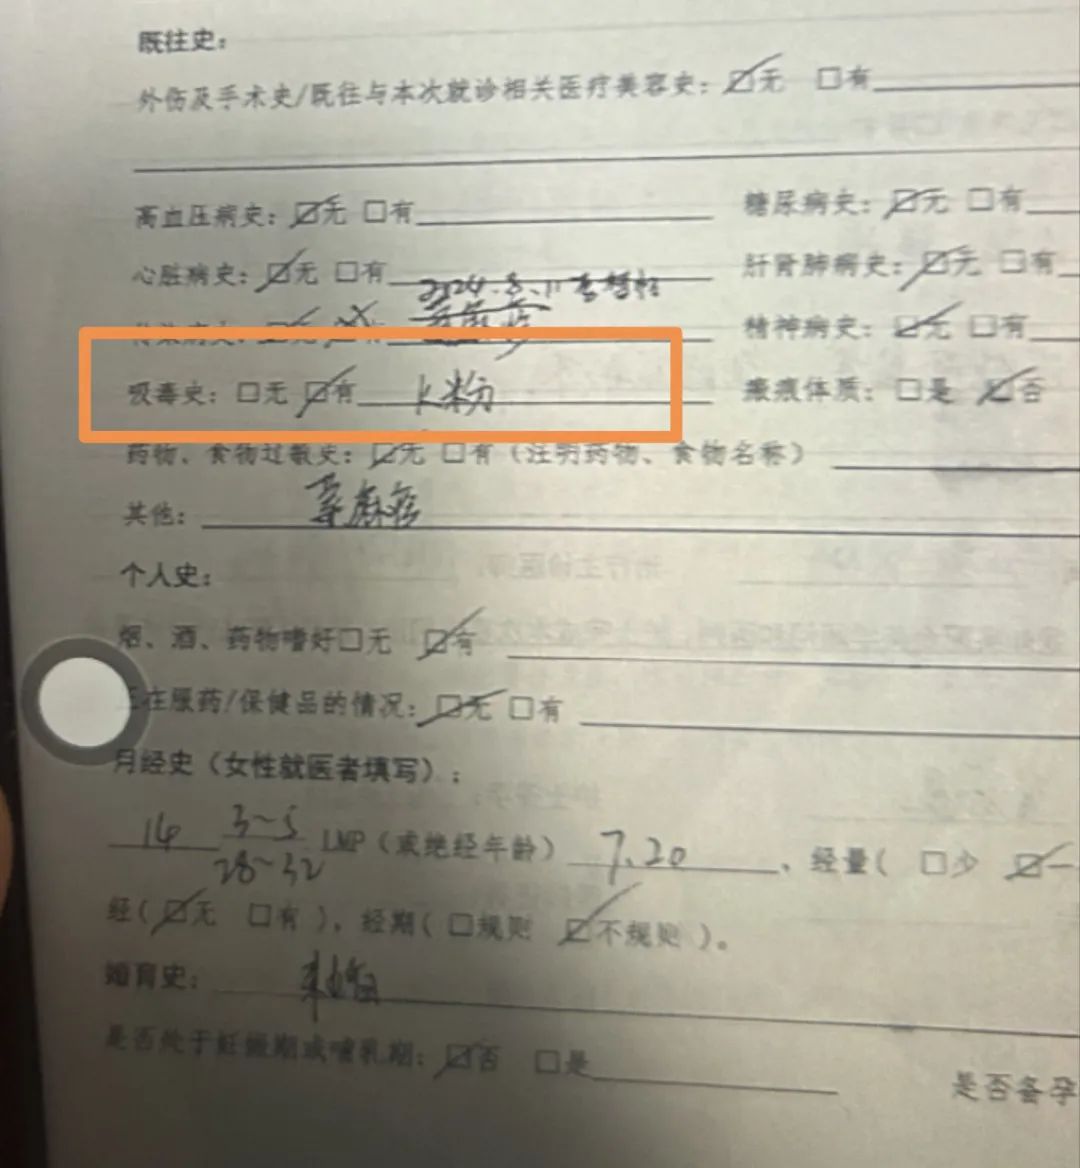 既往史：
外伤及手术史/既往与本次就诊相关医疗美容史：☑无 □有
高血压病史：☑无 □有 糖尿病史：☑无 □有
心脏病史：☑无 □有 肝肾肺病史：☑无 □有
2024.8.11
传染病史：☑无 ☑有 荨麻疹 精神病史：☑无 □有
吸毒史：□无 ☑有 K粉 瘢痕体质：□是 ☑否
药物、食物过敏史：☑无 □有（注明药物、食物名称）
其他：荨麻疹
个人史：
烟、酒、药物嗜好□无 ☑有
正在服药/保健品的情况：☑无 □有
月经史（女性就医者填写）：
14 3~5 LMP（或绝经年龄）7.20、经量（ □少 ☑一
28~32
经（☑无 □有 ），经期（□规则 ☑不规则 ）。
婚育史：未婚
是否处于妊娠期或哺乳期：☑否 □是
是否备孕